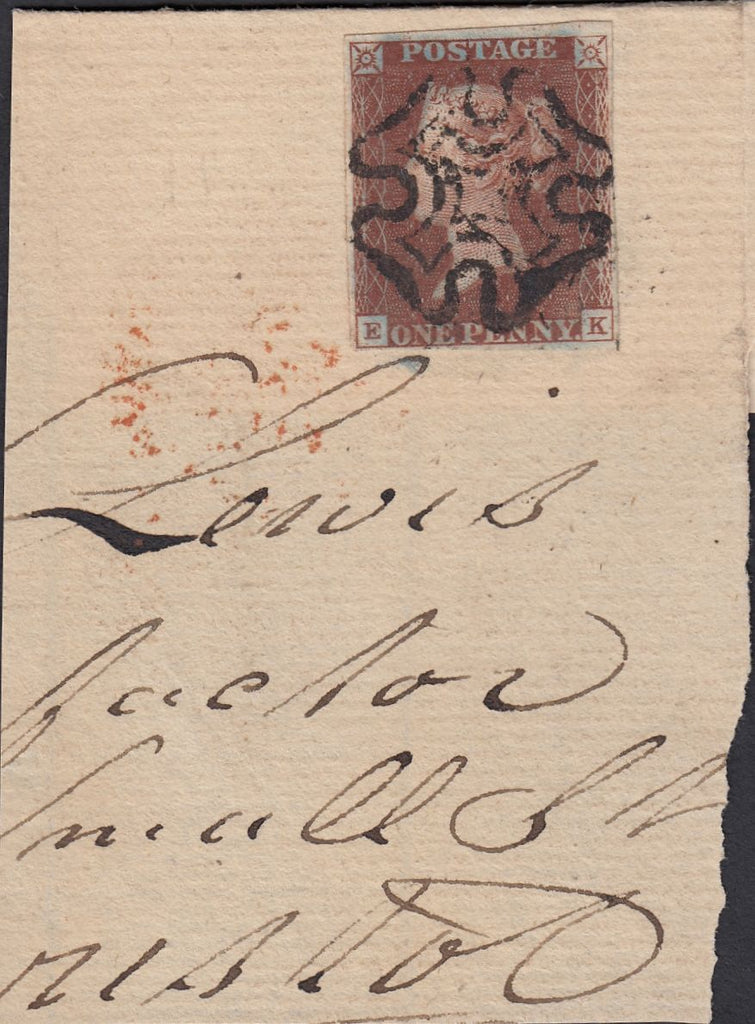 POSTAGE
E ONE PENNY. K
Lewis
factor
Small St
ristol